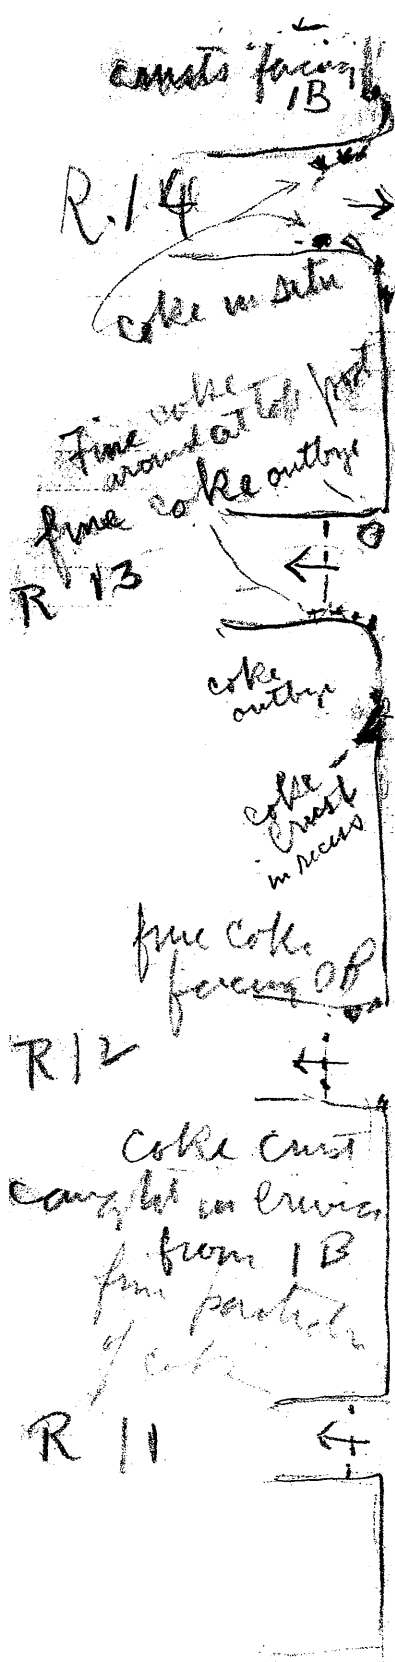 crusts facing
1B
R.14
coke in situ
Fine coke
around at top post
fine coke outbye
R 13
coke
outbye
coke
crust
in recess
fine coke
facing OB
R12
coke crust
caught in crevice
from 1B
fine particles
of coke
R 11